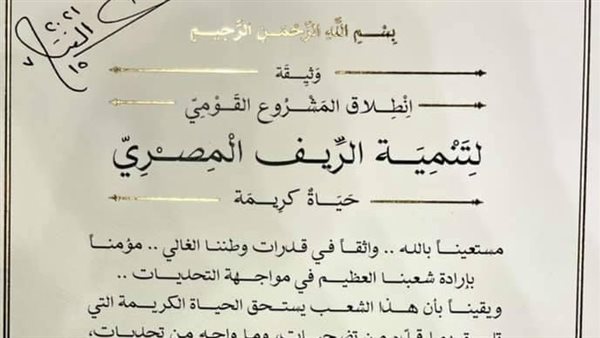 ٢٠٢١
١٥
٧
بِسْمِ اللَّهِ الرَّحْمَنِ الرَّحِيمِ
وَثِيقَة
انْطِلَاق المَشْرُوع القَوْمِيّ
لِتَنْمِيَة الرِّيف الْمِصْرِيّ
حَيَاةٌ كَرِيمَة
مستعيناً بالله .. واثقاً في قدرات وطننا الغالي .. مؤمناً
بإرادة شعبنا العظيم في مواجهة التحديات ..
ويقيناً بأن هذا الشعب يستحق الحياة الكريمة التي
تضحيات، وما واجه من تحديات،